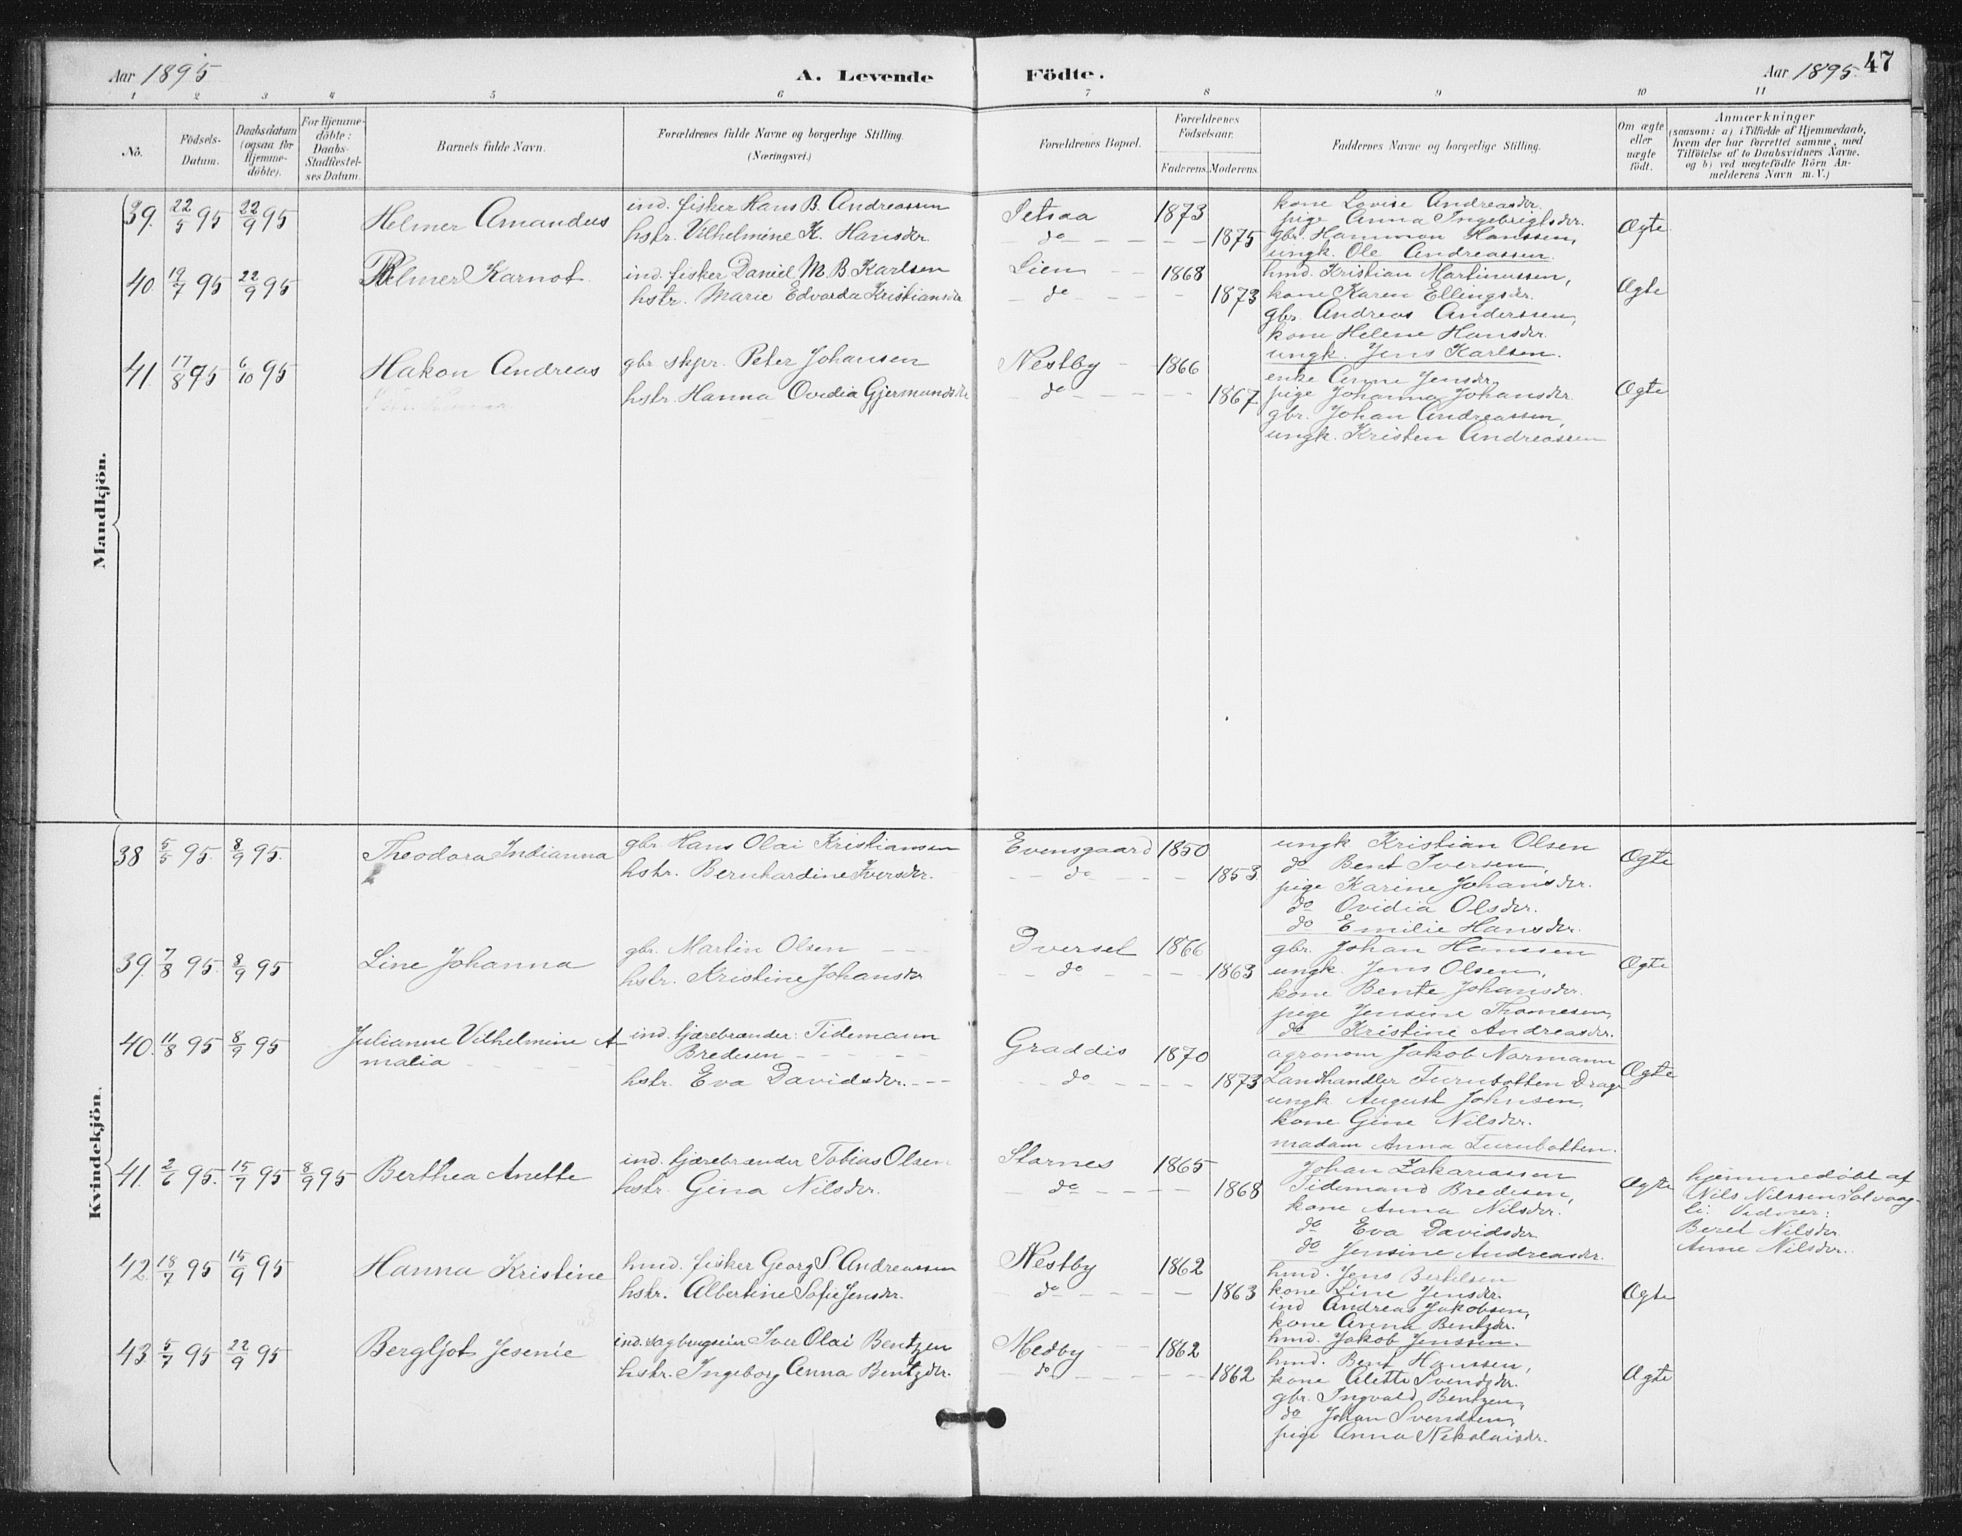 Aar 1895
A. Levende
Födte.
Aar 1895.
47
1 2 3 4 5 6 7 8 9 10 11
No.
Födsels-
Datum.
Daabsdatum
(ogsaa for
Hjemme-
döbte).
For Hjemme-
döbte:
Daabs-
Stadfæstel-
ses Datum.
Barnets fulde Navn.
Forældrenes fulde Navne og borgerlige Stilling.
(Næringsvei.)
Forældrenes Bopæl.
Forældrenes
Fødselsaar.
Faderens. Moderens.
Faddernes Navne og borgerlige Stilling.
Om ægte
eller
uægte
födt.
Anmærkninger
(saasom: a) i Tilfælde af Hjemmedaab,
hvem der har forrettet samme, med
Tilföielse af to Daabsvidners Navne.
og b) ved uægtefödte Börn An-
melderens Navn m. V.)
Mandkjön.
39. 22/5 95 22/9 95
Helmer Amandus
ind. fisker Hans B. Andreassen
hstr. Vilhelmine K. Hansdr.
Setsaa 1873
do 1875
kone Lovise Andreasdr.
pige Anna Ingebrigtsdr.
gbr. Hammon Hanssen,
ungk. Ole Andreassen.
Ægte
40. 19/7 95 22/9 95
Hilmer Karnot
ind. fisker Daniel M. B. Karlsen
hstr. Marie Edvarda Kristiansdr
Lien 1868
do 1873
hmd. Kristian Martinussen,
kone Karen Ellingsdr.
gbr. Andreas Anderssen,
kone Helene Hansdr.
ungk. Jens Karlsen.
Ægte
41. 17/8 95 6/10 95
Hakon Andreas
gbr. skpr. Peter Johansen
hstr. Hanna Ovidia Gjermundsdr
Nestby 1866
do 1867
enke Anne Jensdr.
pige Johanna Johansdr.
gbr. Johan Andreassen,
ungk. Kristen Andreassen
Ægte
Kvindekjön.
38 5/5 95. 8/9 95.
Theodora Indianna
gbr. Hans Olai Kristiansen
hstr. Bernhardine Iversdr.
Evensgaard 1850
do 1853
ungk Kristian Olsen
do Bent Iversen,
pige Karine Johansdr.
do Ovidia Olsdr.
do Emilie Hansdr.
Ægte
39. 7/8 95. 8/9 95
Line Johanna
gbr. Martin Olsen
hstr. Kristine Johansdr
Dversel 1866
do 1863
gbr. Johan Hanssen
ungk. Jens Olsen,
kone Bente Johansdr.
pige Jensine Thomesen,
do Kristine Andreasdr.
Ægte
40. 11/8 95 8/9 95
Julianne Vilhelmine A-
malia
ind. tjærebrænder: Tidemann
Bredesen
hstr. Eva Davidsdr.
Graddis 1870
do 1873
agronom Jakob Normann
Landhandler Furubotten Drage
ungk August Johnsen,
kone Gine Nilsdr.
madam Anna Furubotten.
Ægte
41. 2/6 95. 15/7 95 8/9 95
Berthea Anette
ind. tjærebrænder Tobias Olsen
hstr. Gina Nilsdr.
Stornes 1865
do 1868
Johan Zakariassen
Tidemand Bredesen,
kone Anna Nilsdr.
do Eva Davidsdr
do Jensine Andreasdr.
Ægte
hjemmedøbt af
Nils Nilssen Solvaag-
li. Vidner:
Beret Nilsdr
Anne Nilsdr.
42. 18/7 95 15/9 95
Hanna Kristine
hmd. fisker Georg S. Andreassen
hstr. Albertine Sofie Jensdr.
Nestby 1862
do 1863
hmd. Jens Bertelsen
kone Line Jensdr.
ind Andreas Jakobsen,
kone Anna Bentzdr.
hmd. Jakob Jenssen.
Ægte
43. 5/7 95 22/9 95
Bergljot Jesenie
ind. sagbrugseier Iver Olai Bentzen
hstr. Ingeborg Anna Bentzdr.
Medby 1862
do 1862
hmd. Bent Hanssen,
kone Alette Svendsdr.
gbr. Ingvald Bentzen,
do Johan Svendsen,
pige Anna Nikolaisdr.
Ægte